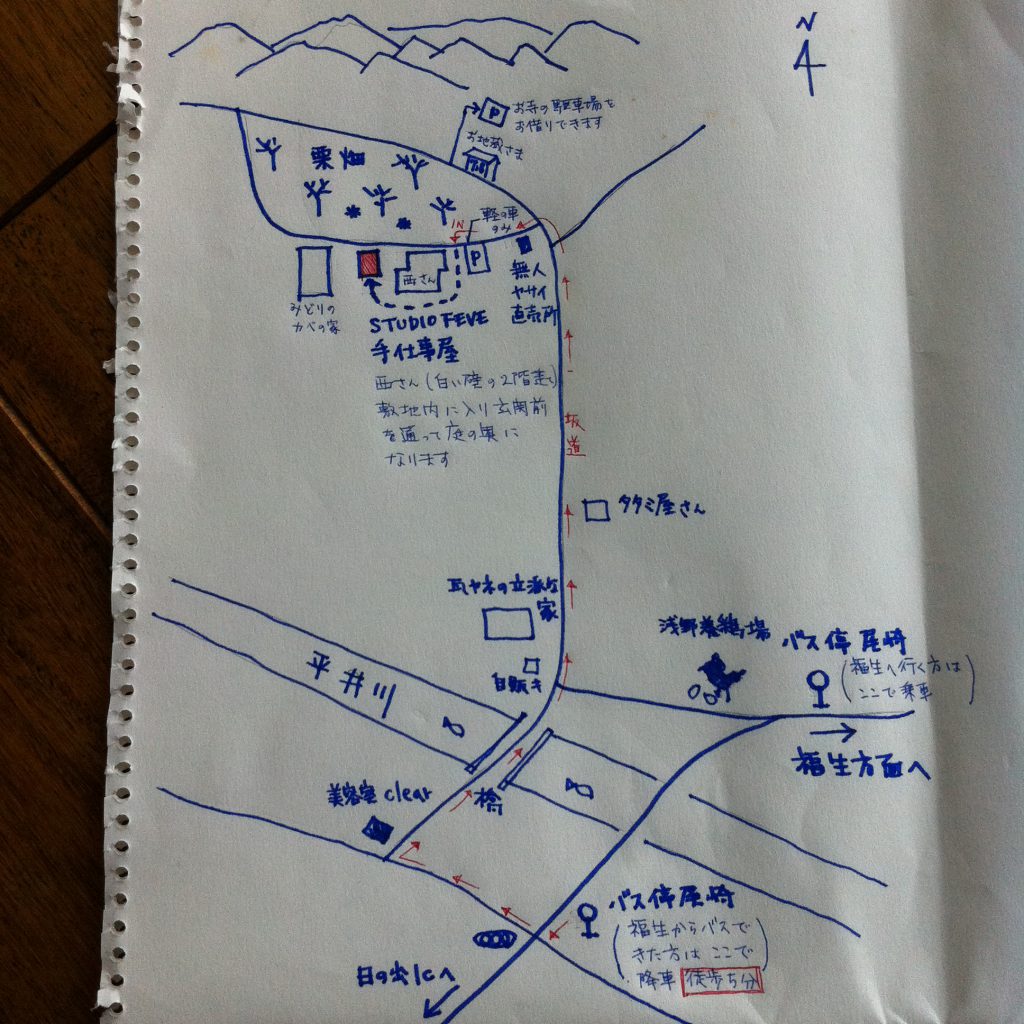 N
P
お寺の駐車場を
お借りできます
お地蔵さま
栗畑
IN
軽の車
のみ
P
西さん
無人
ヤサイ
直売所
みどりの
カベの家
STUDIO FEVE
手仕事屋
西さん(白い壁の2階建)
敷地内に入り玄関前
を通って庭の奥に
なります
坂道
タタミ屋さん
瓦ヤネの立派な
家
自販キ
浅野養鶏場
バス停 尾崎
(福生へ行く方は
ここで乗車)
福生方面へ
平井川
美容室 clear
橋
バス停尾崎
(福生からバスで
きた方は ここで
降車 徒歩5分)
日の出ICへ